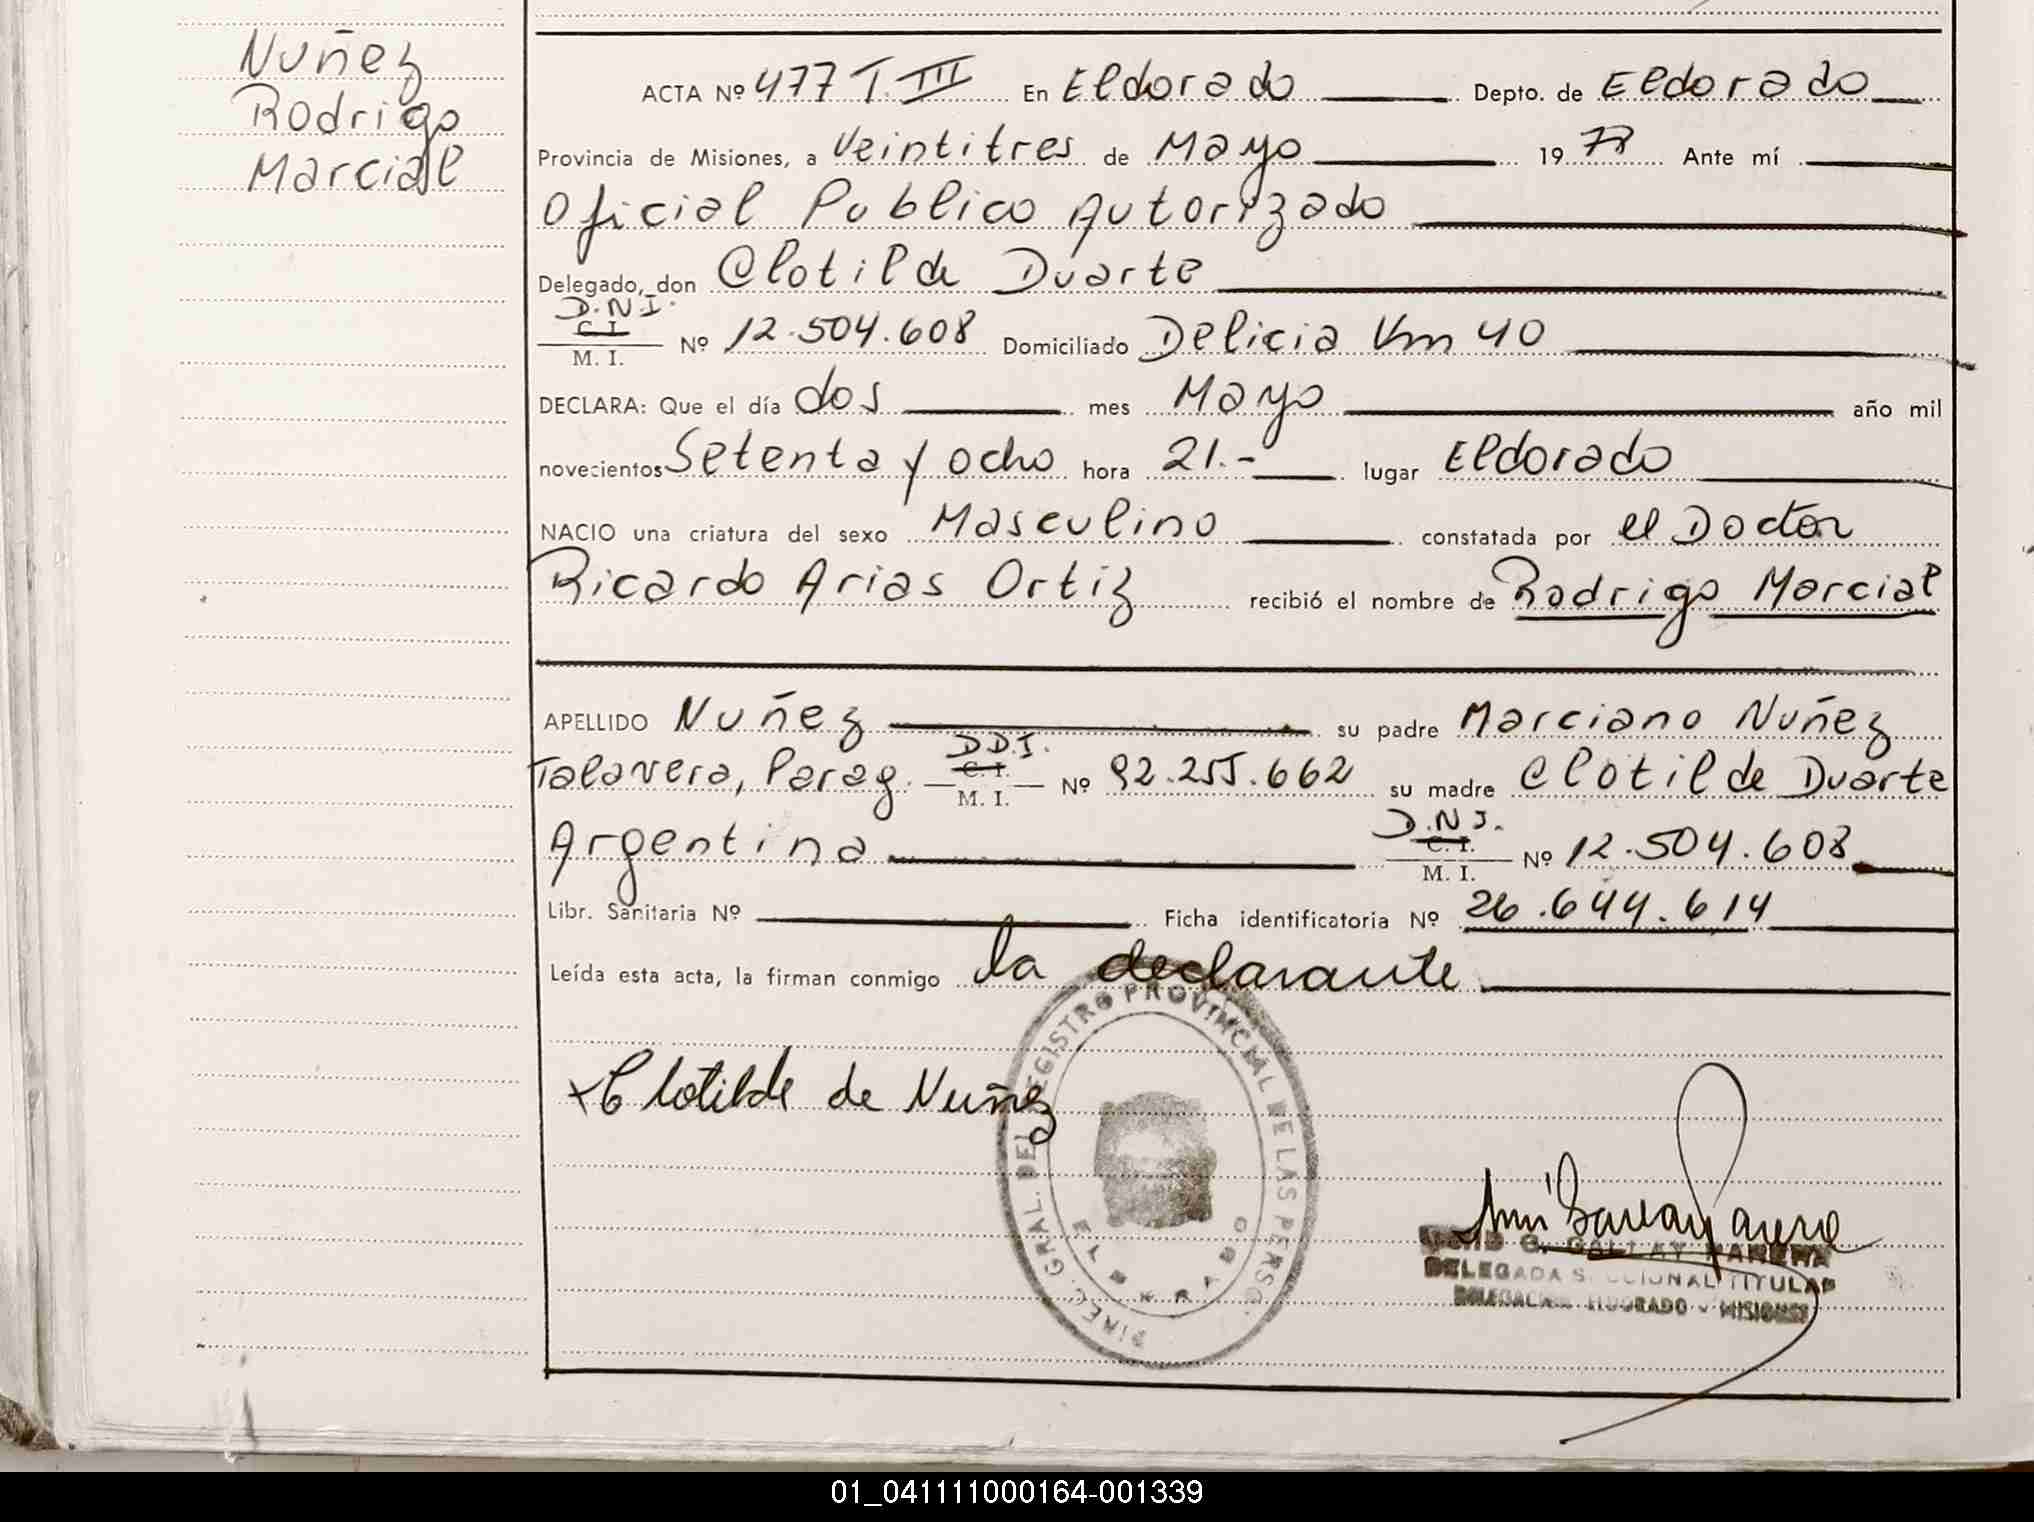 Nuñez
Rodrigo
Marcial
ACTA Nº 477 T. III En Eldorado Depto. de Eldorado
Provincia de Misiones, a Veintitres de Mayo 19 78 Ante mí
Oficial Publico Autorizado
Delegado, don Clotilde Duarte
D.N.I.
C. I.
M. I.
Nº 12.504.608 Domiciliado Delicia Km 40
DECLARA: Que el día dos mes Mayo año mil
novecientos Setenta y ocho hora 21.- lugar Eldorado
NACIO una criatura del sexo Masculino constatada por el Doctor
Ricardo Arias Ortiz recibió el nombre de Rodrigo Marcial
APELLIDO Nuñez su padre Marciano Nuñez
Talavera, Parag. D.D.I. C. I. M. I. Nº 92.255.662 su madre Clotilde Duarte
Argentina D.N.I. C. I. M. I. Nº 12.504.608
Libr. Sanitaria Nº Ficha identificatoria Nº 26.644.614
Leída esta acta, la firman conmigo la declarante
DIREC. GRAL. DEL REGISTRO PROVINCIAL DE LAS PERSO
ELDORADO
Clotilde de Nuñez
DELEGADA SECCIONAL TITULAR
DELEGACION ELDORADO - MISIONES
01_041111000164-001339